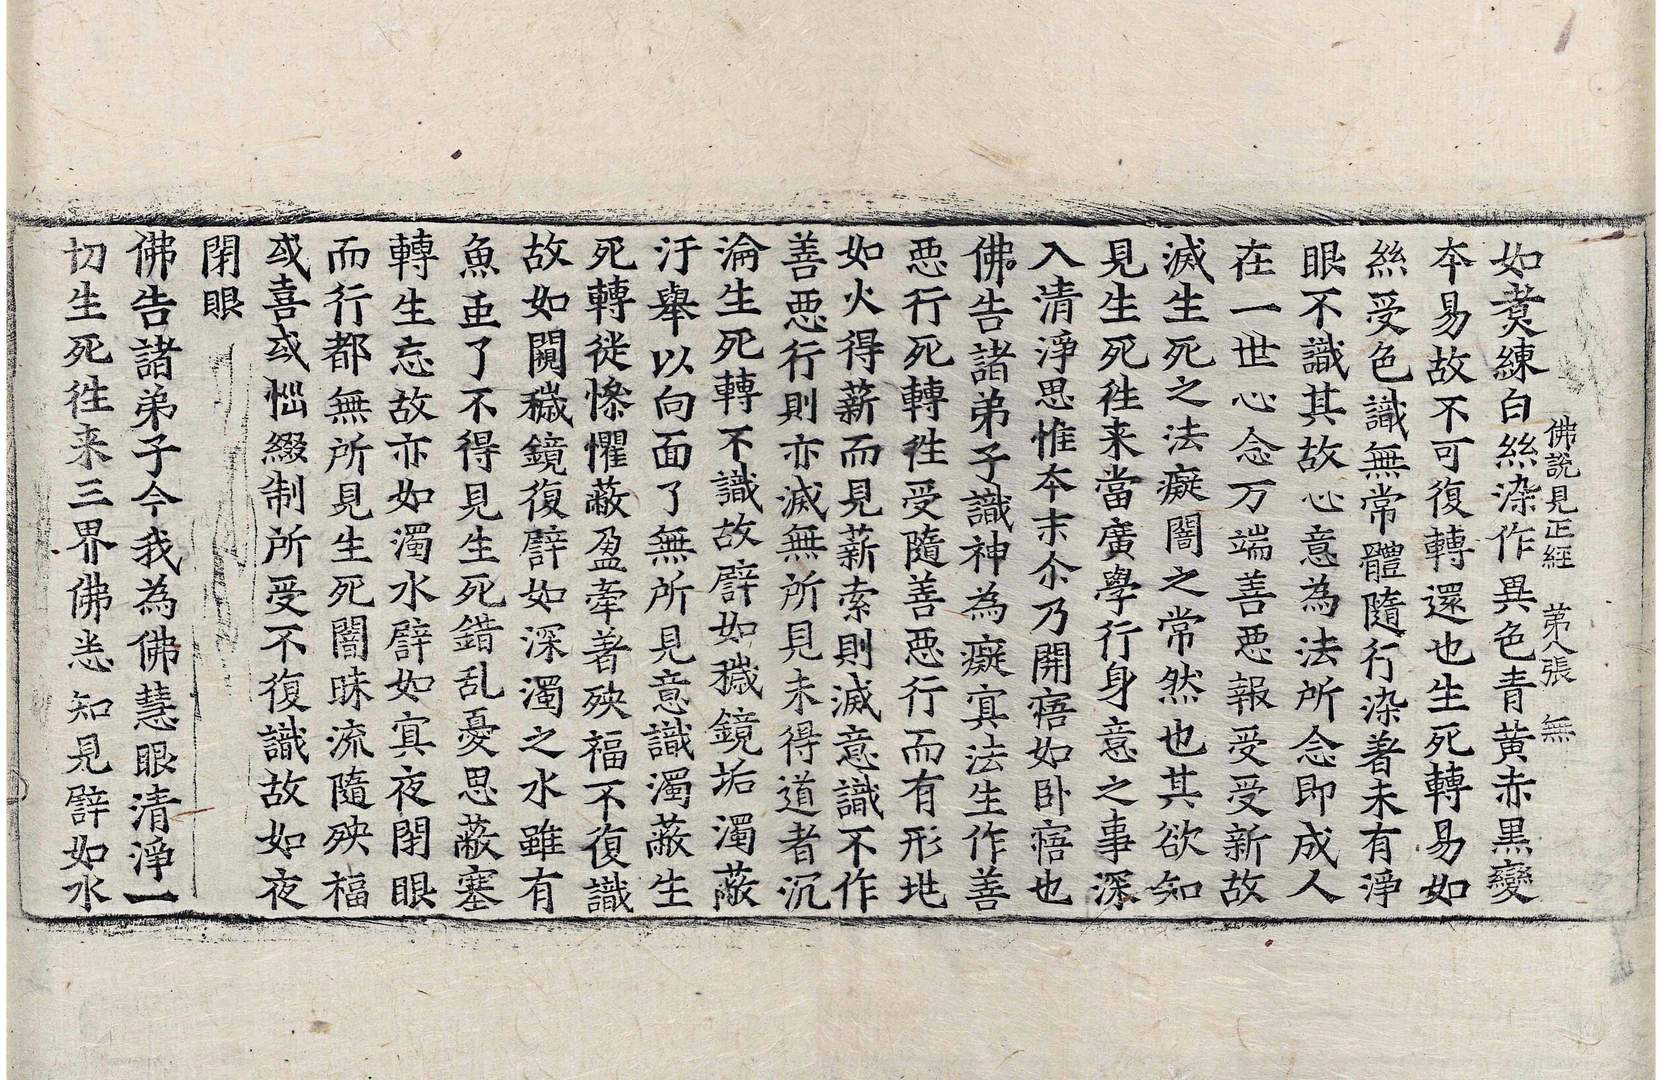 佛說見正經 第八張 無
如煑練白絲染作異色青黄赤黒變
本易故不可復轉還也生死轉易如
絲受色識無常體隨行染著未有淨
眼不識其故心意為法所念即成人
在一世心念万端善惡報受受新故
滅生死之法癡闇之常然也其欲知
見生死徃来當廣學行身意之事深
入清淨思惟本末尒乃開寤如卧寤也
佛告諸弟子識神為癡冥法生作善
惡行死轉徃受隨善惡行而有形地
如火得薪而見薪索則滅意識不作
善惡行則亦滅無所見未得道者沉
淪生死轉不識故譬如穢鏡垢濁蔽
汙舉以向面了無所見意識濁蔽生
死轉徙慘懼蔽盈牽著殃福不復識
故如闚穢鏡復譬如深濁之水雖有
魚重了不得見生死錯乱憂思蔽塞
轉生忘故亦如濁水譬如冥夜閉眼
而行都無所見生死闇昧流隨殃福
或喜或惱綴制所受不復識故如夜
閉眼
佛告諸弟子今我為佛慧眼清淨一
切生死徃来三界佛悉知見譬如水